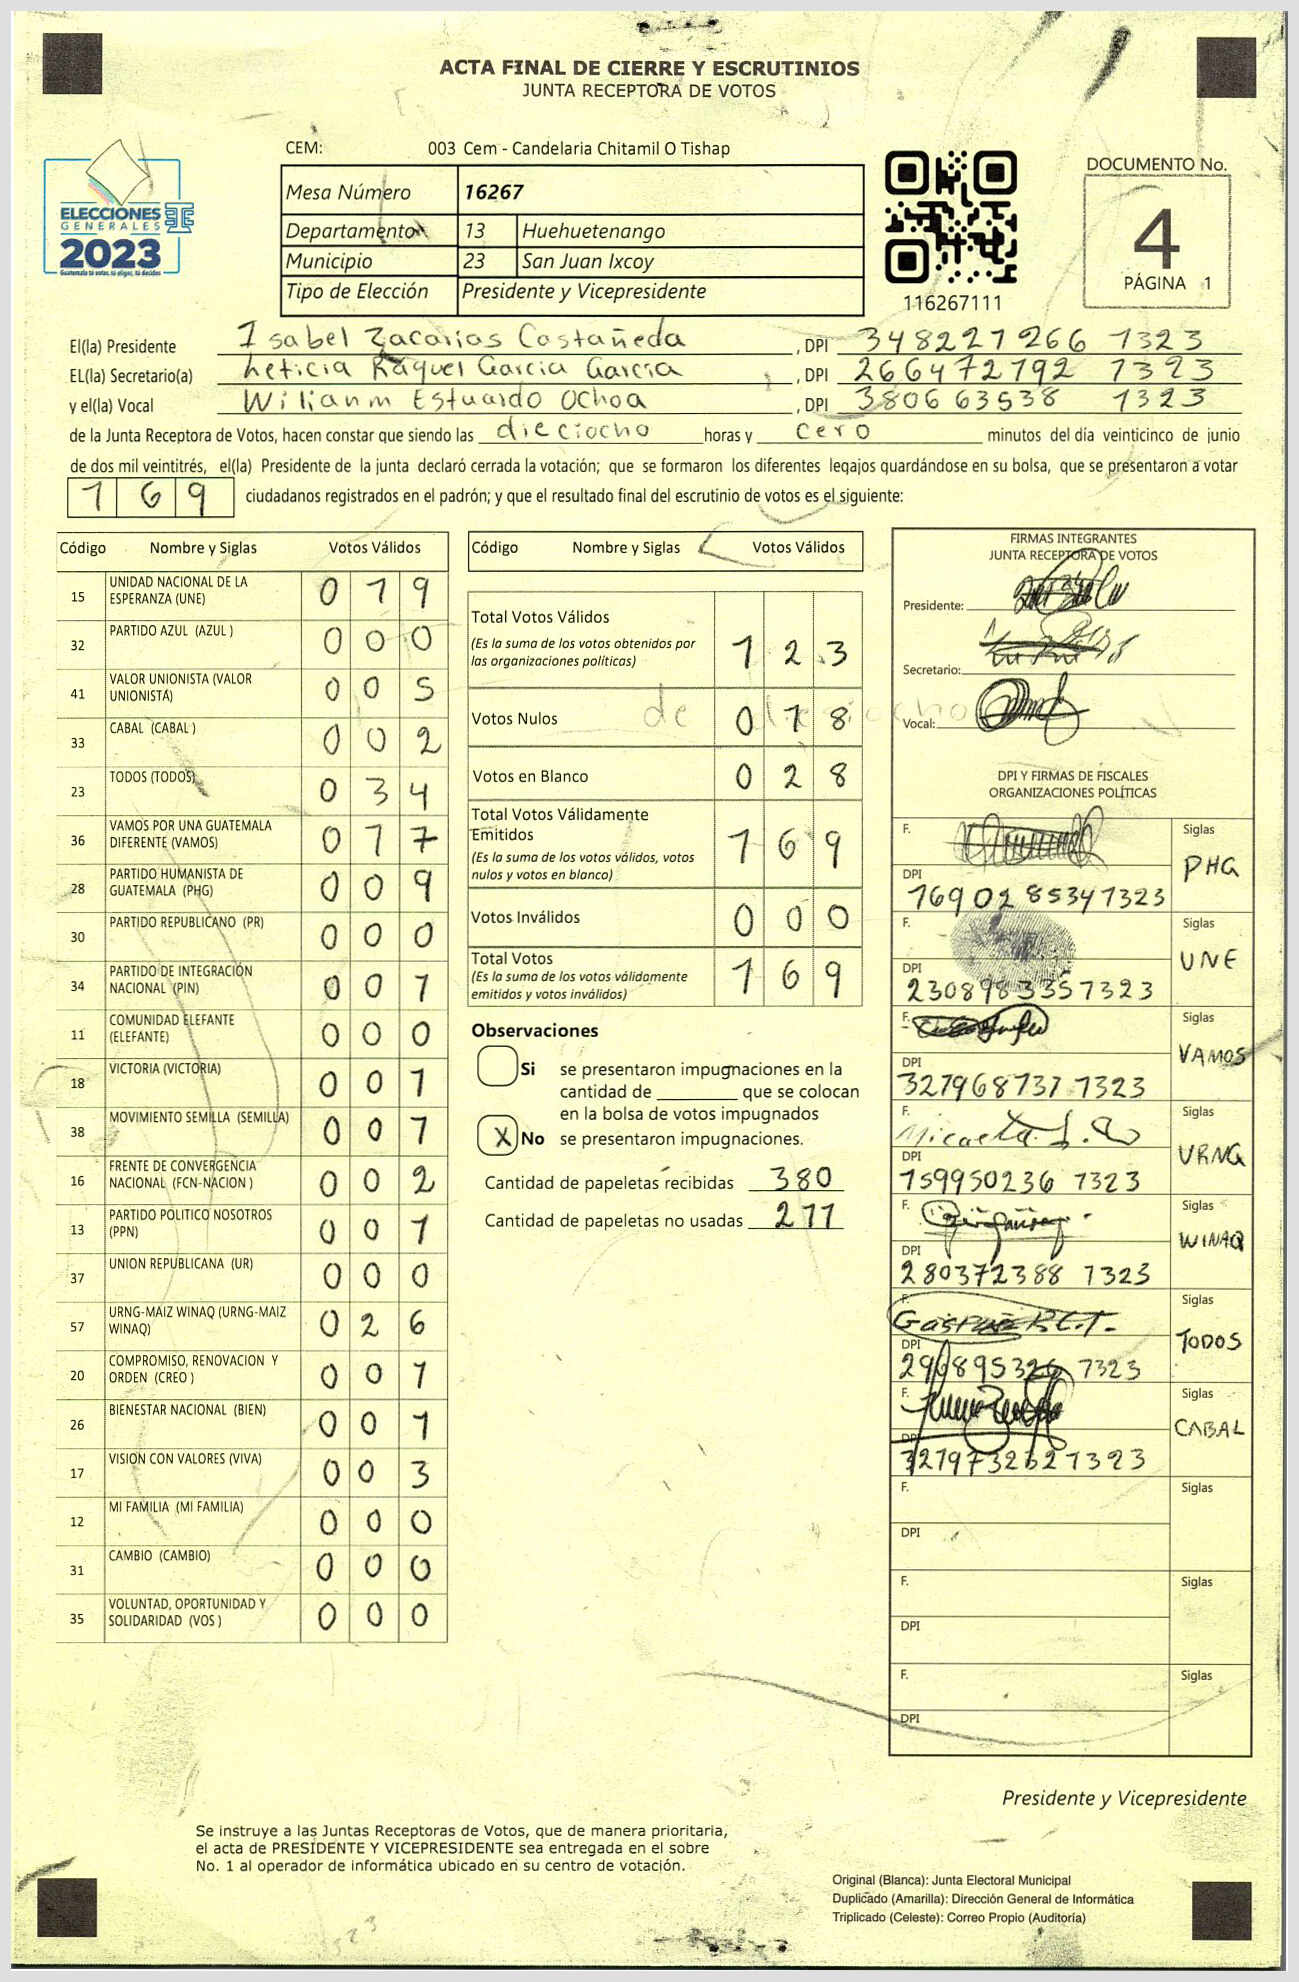 ACTA FINAL DE CIERRE Y ESCRUTINIOS
JUNTA RECEPTORA DE VOTOS
CEM: 003 Cem - Candelaria Chitamil O Tishap
ELECCIONES
GENERALES
2023
Guatemala tú votas, tú eliges, tú decides
Mesa Número 16267
Departamento 13 Huehuetenango
Municipio 23 San Juan Ixcoy
Tipo de Elección Presidente y Vicepresidente
116267111
DOCUMENTO No.
4
PÁGINA 1
El(la) Presidente Isabel Zacarias Castañeda, DPI 348221266 1323
EL(la) Secretario(a) Leticia Raquel Garcia Garcia, DPI 266472792 1323
y el(la) Vocal Wilianm Estuardo Ochoa, DPI 380663538 1323
de la Junta Receptora de Votos, hacen constar que siendo las dieciocho horas y cero minutos del día veinticinco de junio
de dos mil veintitrés, el(la) Presidente de la junta declaró cerrada la votación; que se formaron los diferentes legajos guardándose en su bolsa, que se presentaron a votar
169 ciudadanos registrados en el padrón; y que el resultado final del escrutinio de votos es el siguiente:
Código Nombre y Siglas Votos Válidos
15 UNIDAD NACIONAL DE LA ESPERANZA (UNE) 0 1 9
32 PARTIDO AZUL (AZUL ) 0 0 0
41 VALOR UNIONISTA (VALOR UNIONISTA) 0 0 5
33 CABAL (CABAL ) 0 0 2
23 TODOS (TODOS) 0 3 4
36 VAMOS POR UNA GUATEMALA DIFERENTE (VAMOS) 0 1 7
28 PARTIDO HUMANISTA DE GUATEMALA (PHG) 0 0 9
30 PARTIDO REPUBLICANO (PR) 0 0 0
34 PARTIDO DE INTEGRACIÓN NACIONAL (PIN) 0 0 1
11 COMUNIDAD ELEFANTE (ELEFANTE) 0 0 0
18 VICTORIA (VICTORIA) 0 0 1
38 MOVIMIENTO SEMILLA (SEMILLA) 0 0 1
16 FRENTE DE CONVERGENCIA NACIONAL (FCN-NACION ) 0 0 2
13 PARTIDO POLITICO NOSOTROS (PPN) 0 0 1
37 UNION REPUBLICANA (UR) 0 0 0
57 URNG-MAIZ WINAQ (URNG-MAIZ WINAQ) 0 2 6
20 COMPROMISO, RENOVACION Y ORDEN (CREO ) 0 0 1
26 BIENESTAR NACIONAL (BIEN) 0 0 1
17 VISION CON VALORES (VIVA) 0 0 3
12 MI FAMILIA (MI FAMILIA) 0 0 0
31 CAMBIO (CAMBIO) 0 0 0
35 VOLUNTAD, OPORTUNIDAD Y SOLIDARIDAD (VOS ) 0 0 0
Código Nombre y Siglas Votos Válidos
Total Votos Válidos
(Es la suma de los votos obtenidos por
las organizaciones políticas) 1 2 3
Votos Nulos 0 1 8
Votos en Blanco 0 2 8
Total Votos Válidamente
Emitidos
(Es la suma de los votos válidos, votos
nulos y votos en blanco) 1 6 9
Votos Inválidos 0 0 0
Total Votos
(Es la suma de los votos válidamente
emitidos y votos inválidos) 1 6 9
Observaciones
Si se presentaron impugnaciones en la
cantidad de ________ que se colocan
en la bolsa de votos impugnados
X No se presentaron impugnaciones.
Cantidad de papeletas recibidas 380
Cantidad de papeletas no usadas 211
FIRMAS INTEGRANTES
JUNTA RECEPTORA DE VOTOS
Presidente:
Secretario:
Vocal:
DPI Y FIRMAS DE FISCALES
ORGANIZACIONES POLÍTICAS
F. Siglas PHG
DPI 1690285341323
F. Siglas UNE
DPI 2308983351323
F. Siglas VAMOS
DPI 327968737 1323
F. Micaela Siglas URNG
DPI 159950236 1323
F. Siglas WINAQ
DPI 280372388 1323
F. Siglas TODOS
DPI 1323
F. Siglas CABAL
DPI 1323
F. Siglas
DPI
F. Siglas
DPI
F. Siglas
DPI
Presidente y Vicepresidente
Se instruye a las Juntas Receptoras de Votos, que de manera prioritaria,
el acta de PRESIDENTE Y VICEPRESIDENTE sea entregada en el sobre
No. 1 al operador de informática ubicado en su centro de votación.
Original (Blanca): Junta Electoral Municipal
Duplicado (Amarilla): Dirección General de Informática
Triplicado (Celeste): Correo Propio (Auditoría)